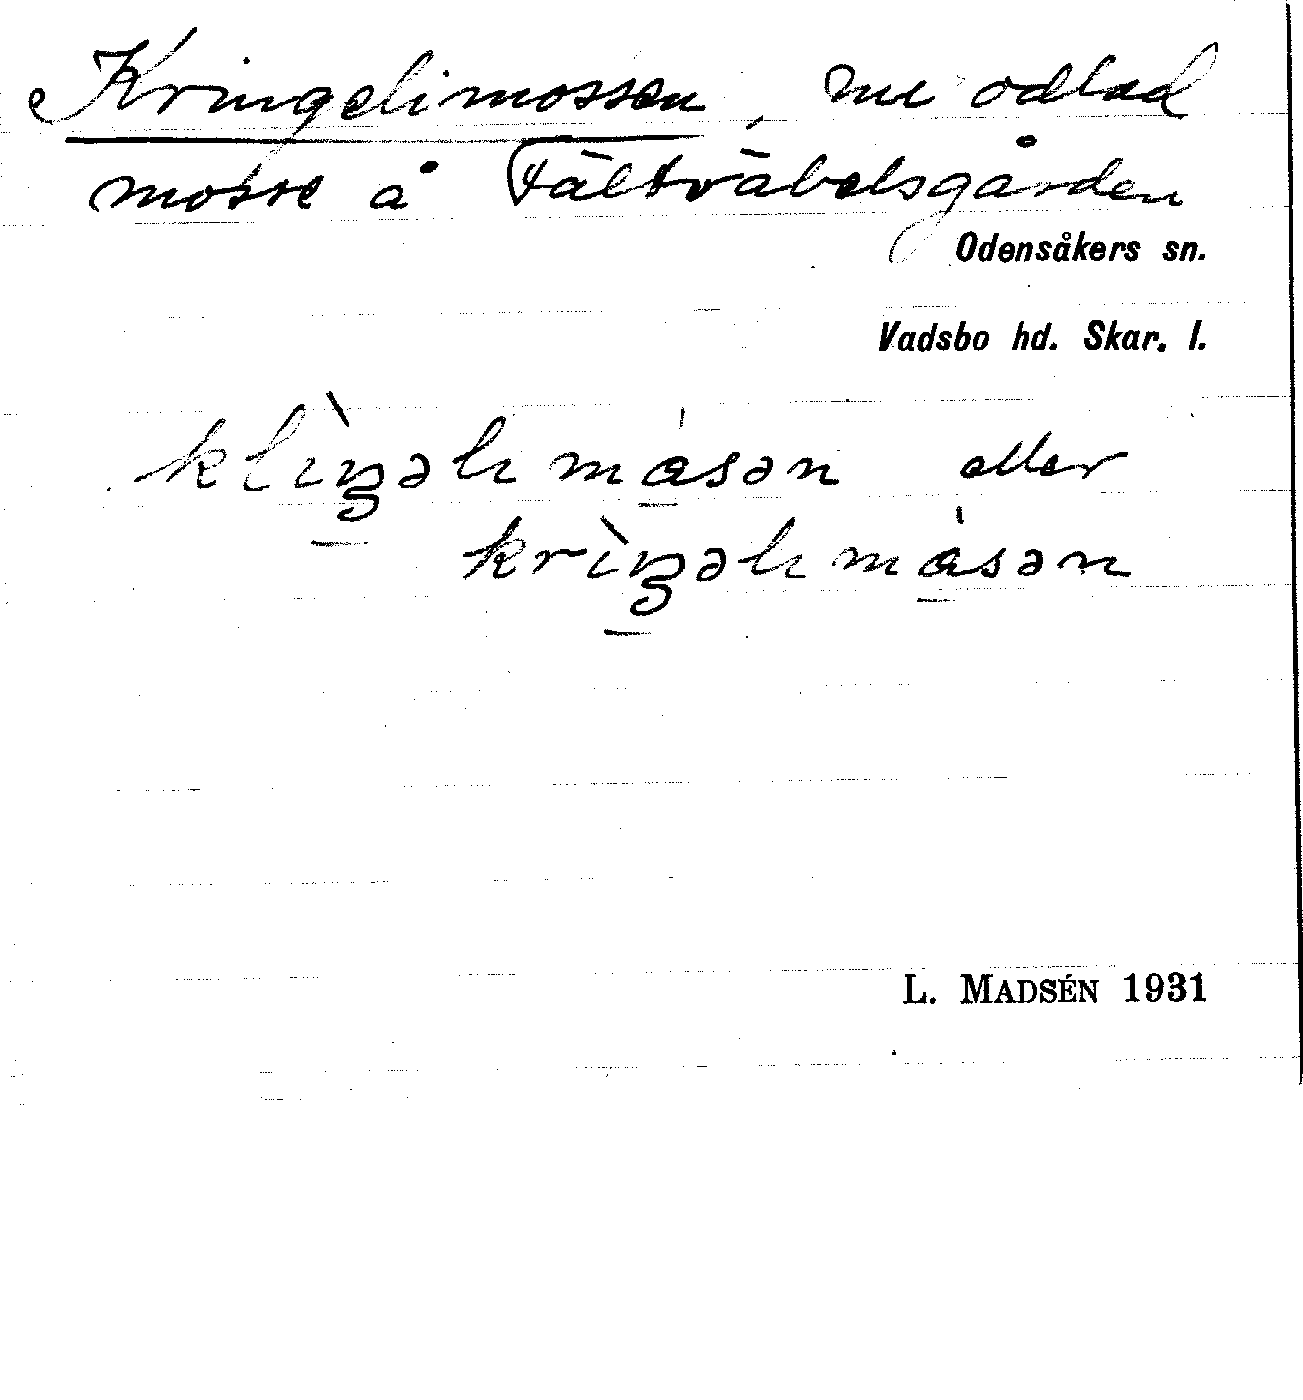 Kringelimossen, nu odlad
mosse å Fältväbelsgården
Odensåkers sn.
Vadsbo hd. Skar. l.
klìŋəlı másən eller
krìŋəlı másən
L. MADSÉN 1931